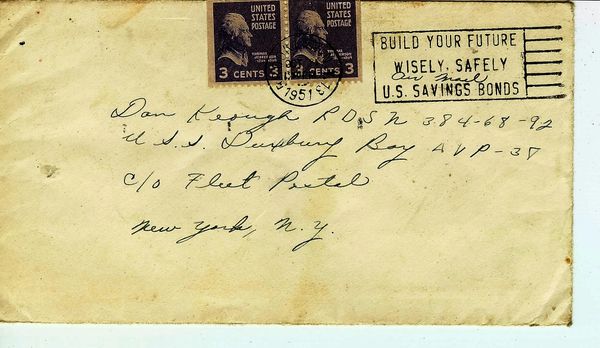 UNITED STATES POSTAGE
UNITED STATES POSTAGE
THOMAS JEFFERSON
3 CENTS 3
CENTS 3
1951
BUILD YOUR FUTURE
WISELY, SAFELY
Air Mail
U.S. SAVINGS BONDS
Dan Keough RDSN 384-68-92
U.S.S. Duxbury Bay AVP-38
c/o Fleet Postal
New York, N.Y.